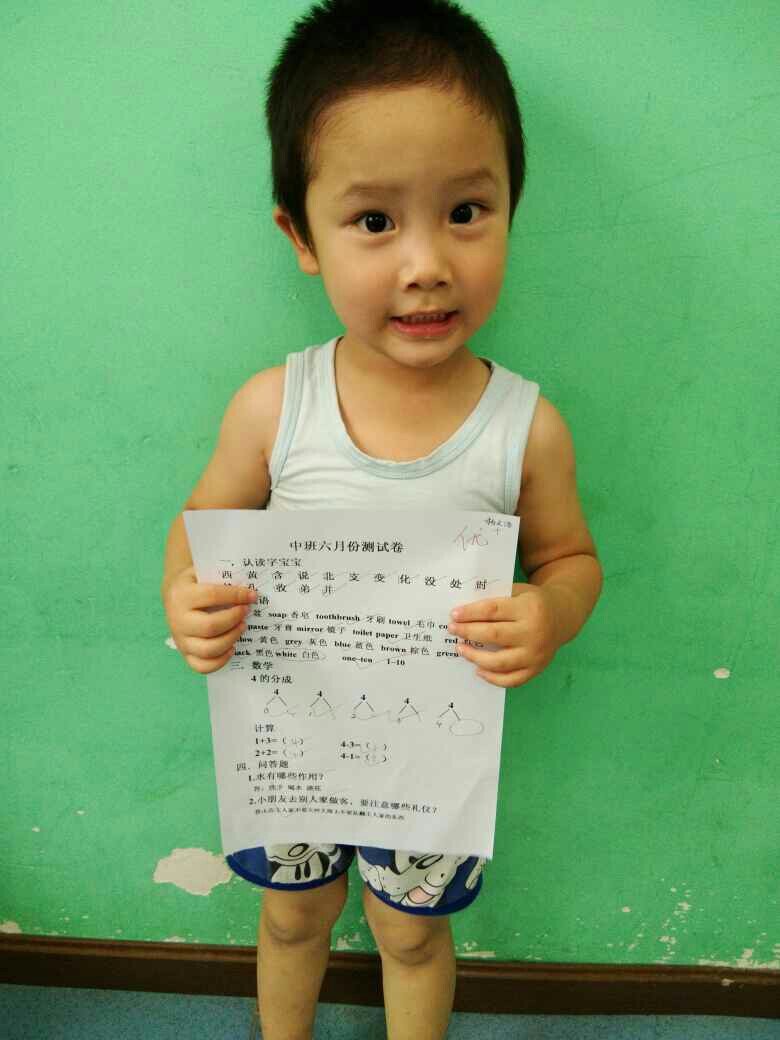 优+
中班六月份测试卷
一，认读字宝宝
西 黄 含 说 北 支 变 化 没 处 时
孔 收 弟 并
语
soap 香皂 toothbrush 牙刷 towel 毛巾
paste 牙膏 mirror 镜子 toilet paper 卫生纸 red
黄色 grey 灰色 blue 蓝色 brown 棕色 green
黑色 white 白色 one-ten 1-10
三，数学
4 的分成
4 4 4 4 4
计算
1+3=( ) 4-3=( )
2+2=( ) 4-1=( )
四．问答题
1.水有哪些作用？
答：洗手 喝水 浇花
2.小朋友去别人家做客，要注意哪些礼仪？